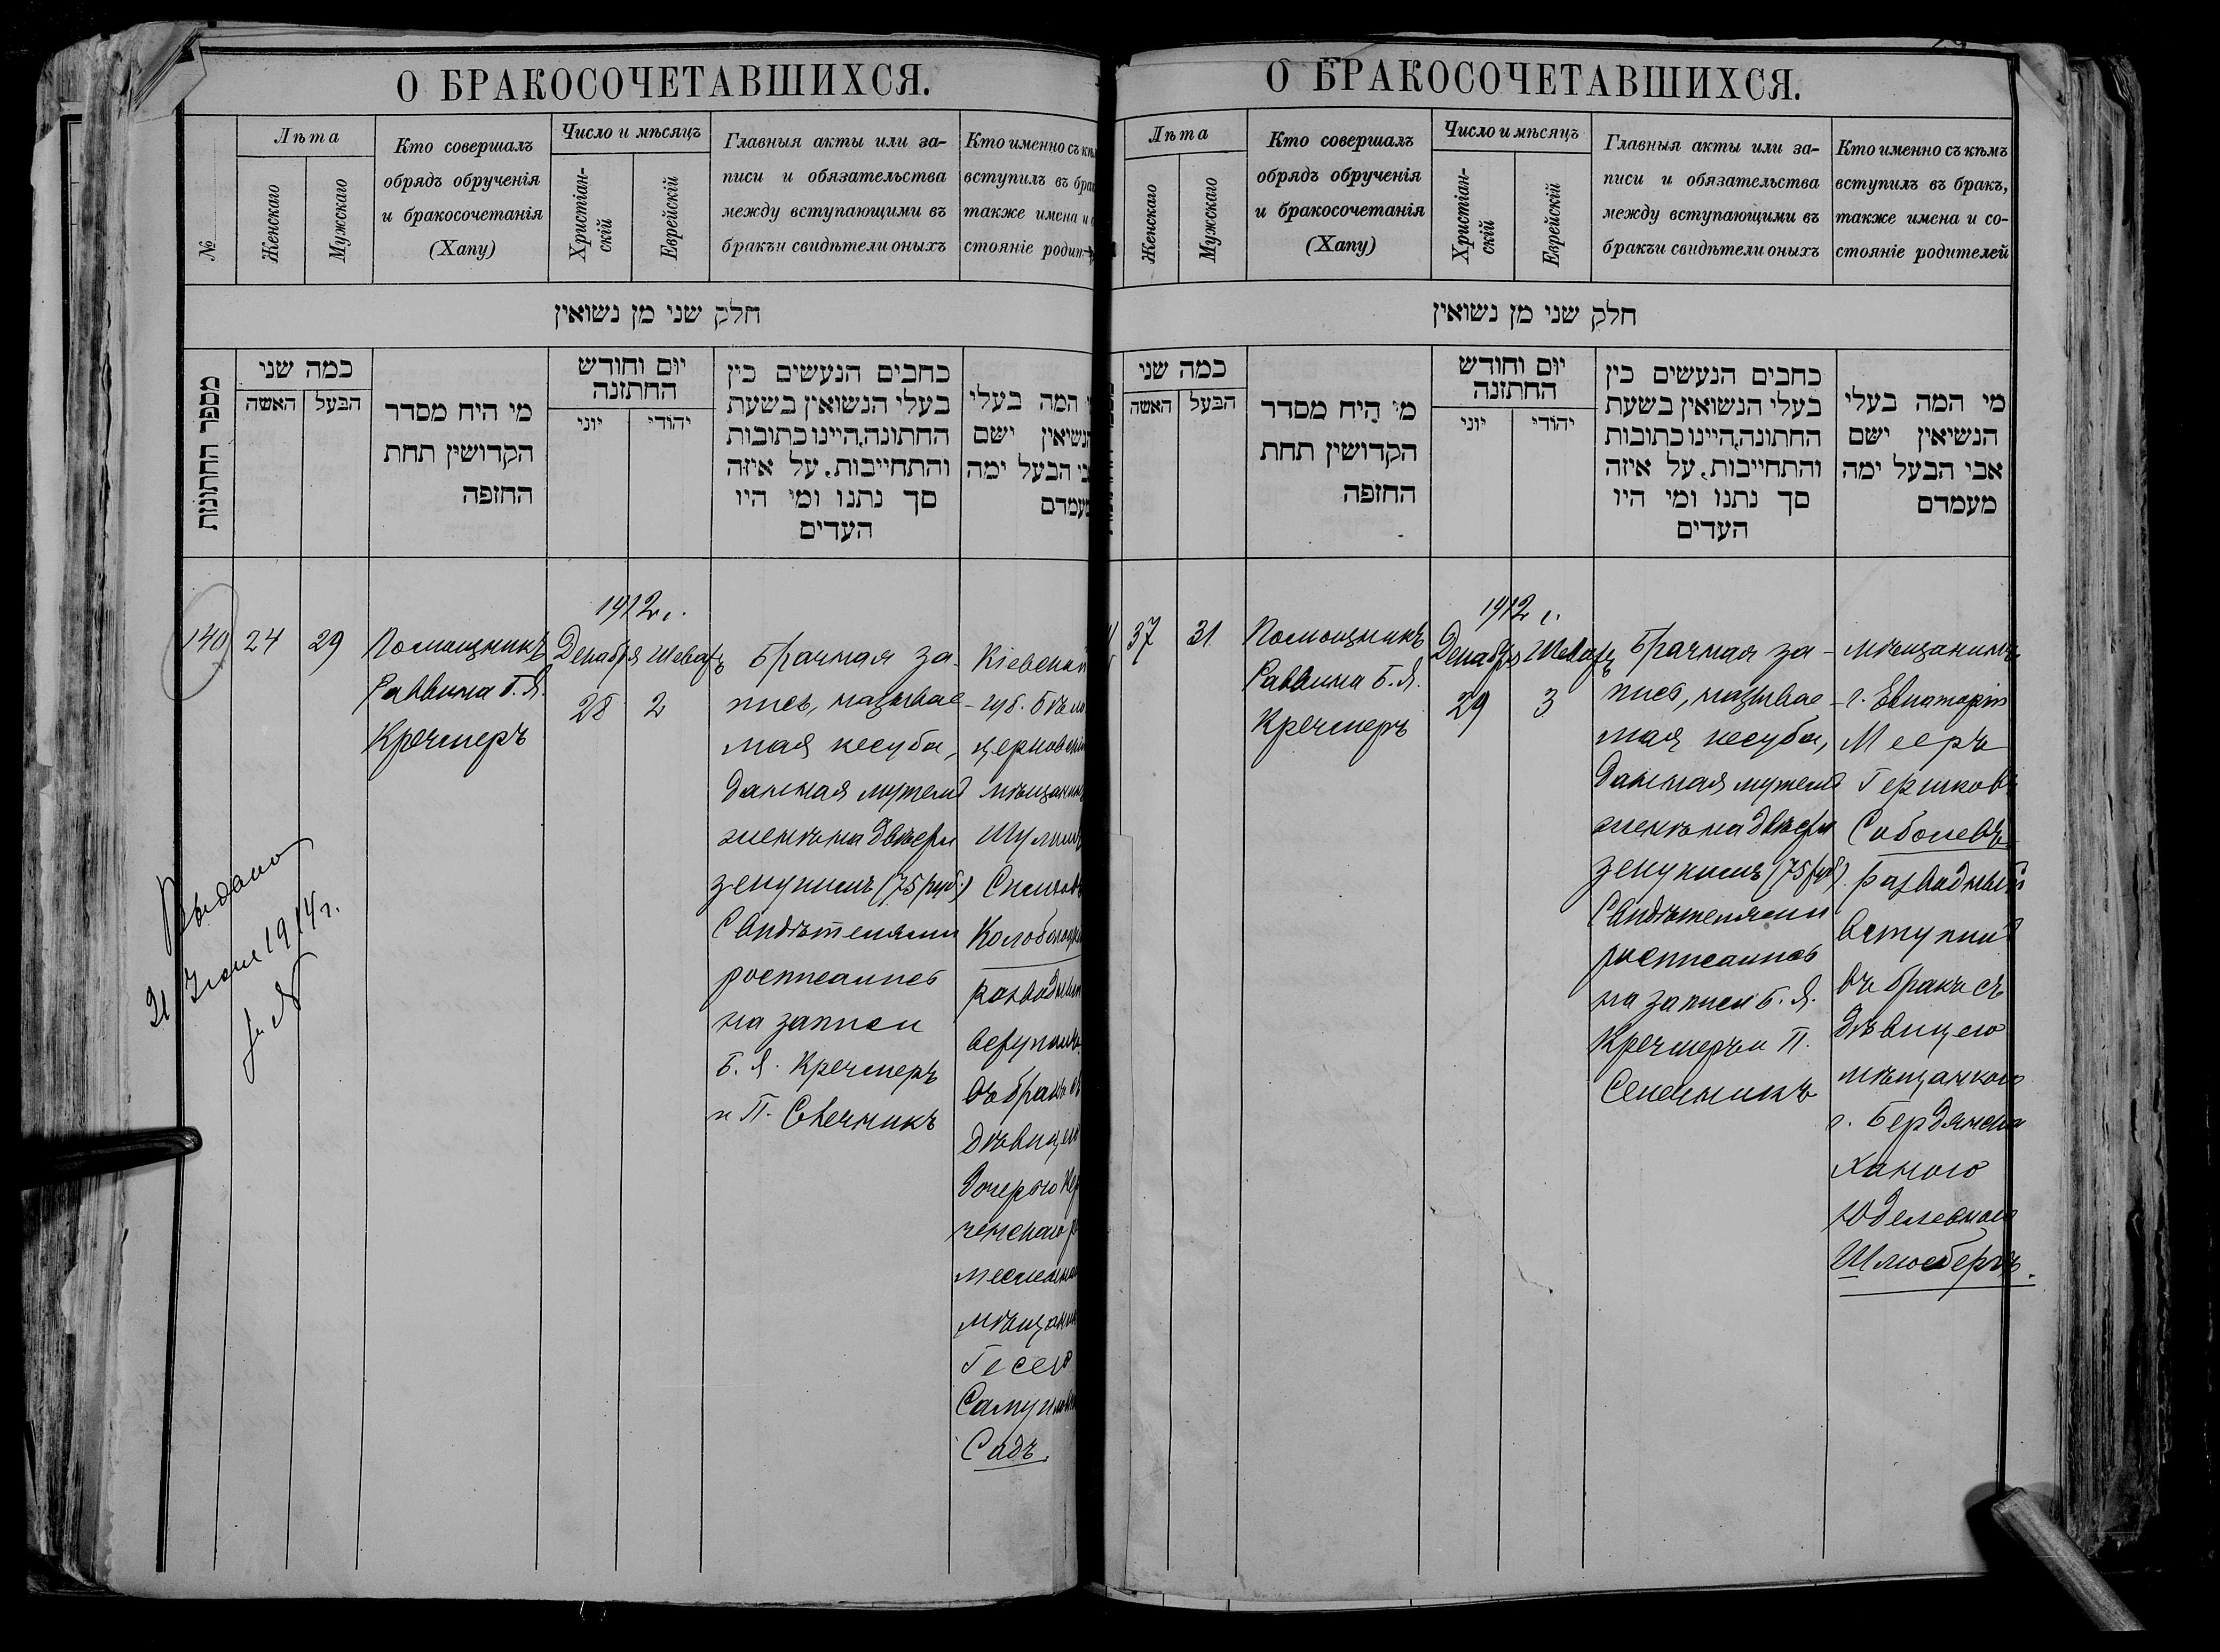 О БРАКОСОЧЕТАВШИХСЯ.
№
Лѣта
Женскаго
Мужскаго
Кто совершалъ
обрядъ обрученія
и бракосочетанія
(Хапу)
Число и мѣсяцъ
Христіан-
скій
Еврейскій
Главныя акты или за-
писи и обязательства
между вступающими въ
бракъи свидѣтели оныхъ
Кто именно съ
вступилъ въ
также имена и
стояніе
חלק שני מן נשואין
מספר החתונות
כמה שני
האשה
הבעל
מי היח מסדר
הקדושין תחת
החזפה
יום וחודש
החתזנה
יוני
יהודי
כחבים הנעשים כין
בעלי הנשואין בשעת
החתונה,היינו כתובות
והתחייבות, על איזה
סך נתנו ומי היו
העדים
המה בעלי
הנשיאין ישם
הבעל ימה
מעמדם
140
24
29
Помощникъ
Раввина Б. Я.
Кречмеръ
1912 г.
Декабря
28
Шеватъ
2
Брачная за-
пись, называе-
мая кесуба,
данная мужемъ
женѣ на двѣсти
зекукимъ (75 руб.)
Свидѣтелями
росписались
на записи
Б. Я. Кречмеръ
и П. Свечникъ
Кіевской
губ. Бѣло
церковскій
мѣщанинъ
разводный
вступилъ
въ бракъ съ
дѣвицею
дочерью Кер
ченскаго
мѣщанина
Гесею
Садъ.
Выдана
21 1914 г.
О БРАКОСОЧЕТАВШИХСЯ.
Лѣта
Женскаго
Мужскаго
Кто совершалъ
обрядъ обрученія
и бракосочетанія
(Хапу)
Число и мѣсяцъ
Христіан-
скій
Еврейскій
Главныя акты или за-
писи и обязательства
между вступающими въ
бракъи свидѣтели оныхъ
Кто именно съ кѣмъ
вступилъ въ бракъ,
также имена и со-
стояніе родителей
חלק שני מן נשואין
כמה שני
האשה
הבעל
מי היח מסדר
הקדושין תחת
החזפה
יום וחודש
החתזנה
יוני
יהודי
כחבים הנעשים כין
בעלי הנשואין בשעת
החתונה,היינו כתובות
והתחייבות, על איזה
סך נתנו ומי היו
העדים
מי המה בעלי
הנשיאין ישם
אבי הבעל ימה
מעמדם
37
31
Помощникъ
Раввина Б. Я.
Кречмеръ
1912 г.
Декабря
29
Шеватъ
3
Брачная за-
пись, называе-
мая кесуба,
данная мужемъ
женѣ на двѣсти
зекукимъ (75 руб.)
Свидѣтелями
росписались
на записи Б. Я.
Кречмеръ и П.
Свечникъ
мѣщанинъ
г. Евпаторіи
Мееръ
Гершковъ
Соболевъ
разводный
вступилъ
въ бракъ съ
дѣвицею
мѣщанкою
г. Бердянска
Ханою
Юделевною
Шлюсбергъ.